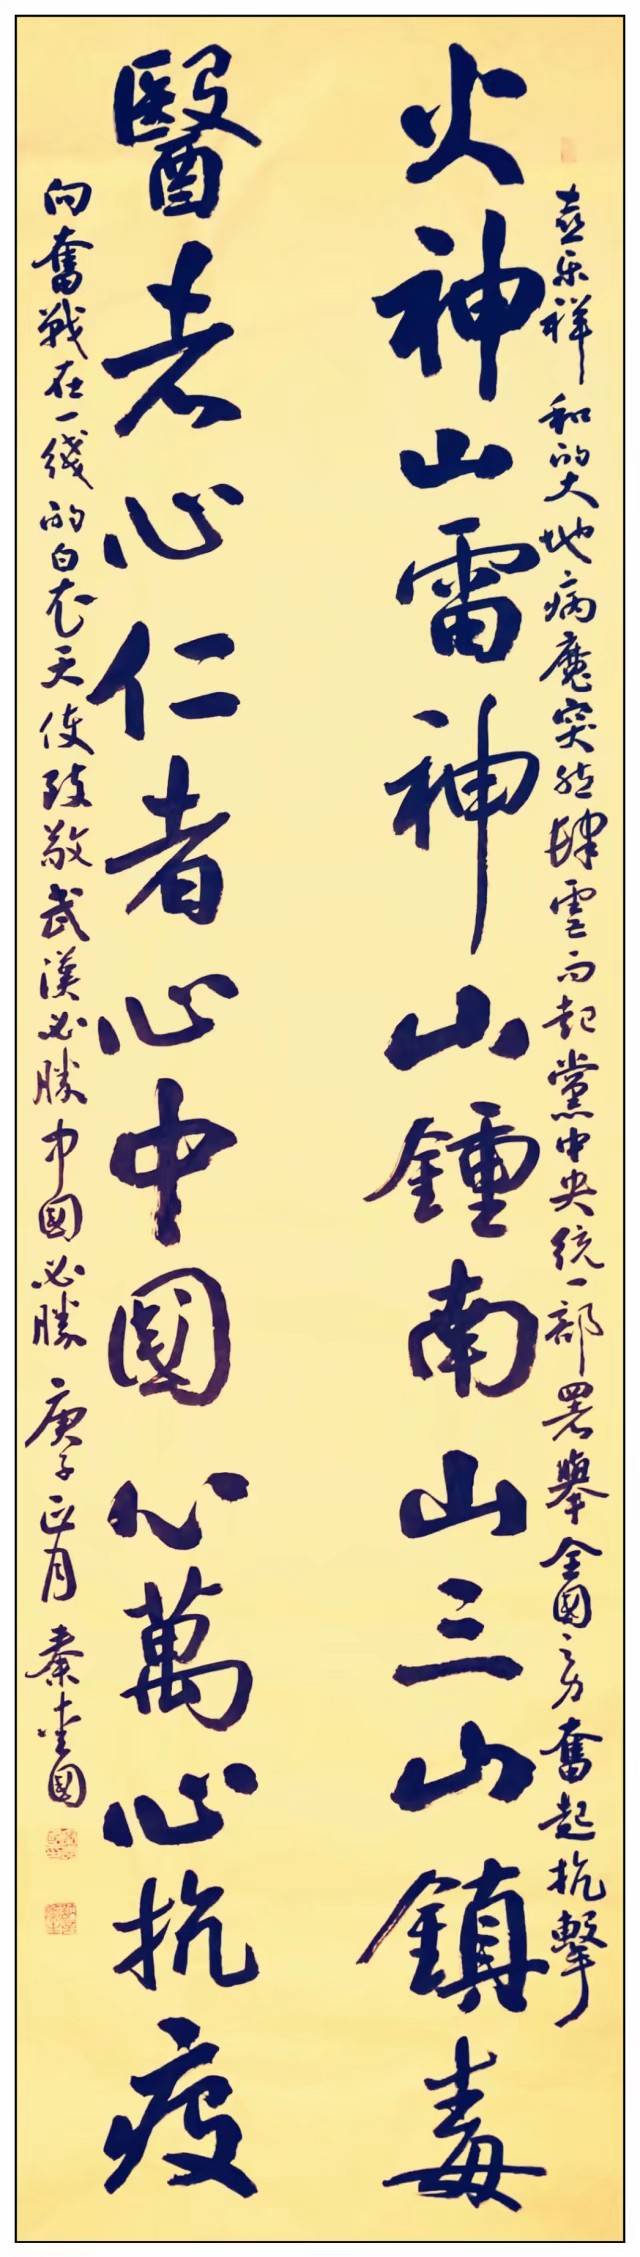 喜乐祥和的大地病魔突然肆虐而起黨中央统一部署舉全國之力奮起抗擊
火神山雷神山鍾南山三山鎮毒
醫者心仁者心中國心萬心抗疫
向奮戰在一綫的白衣天使致敬武漢必勝中國必勝 庚子正月 秦國